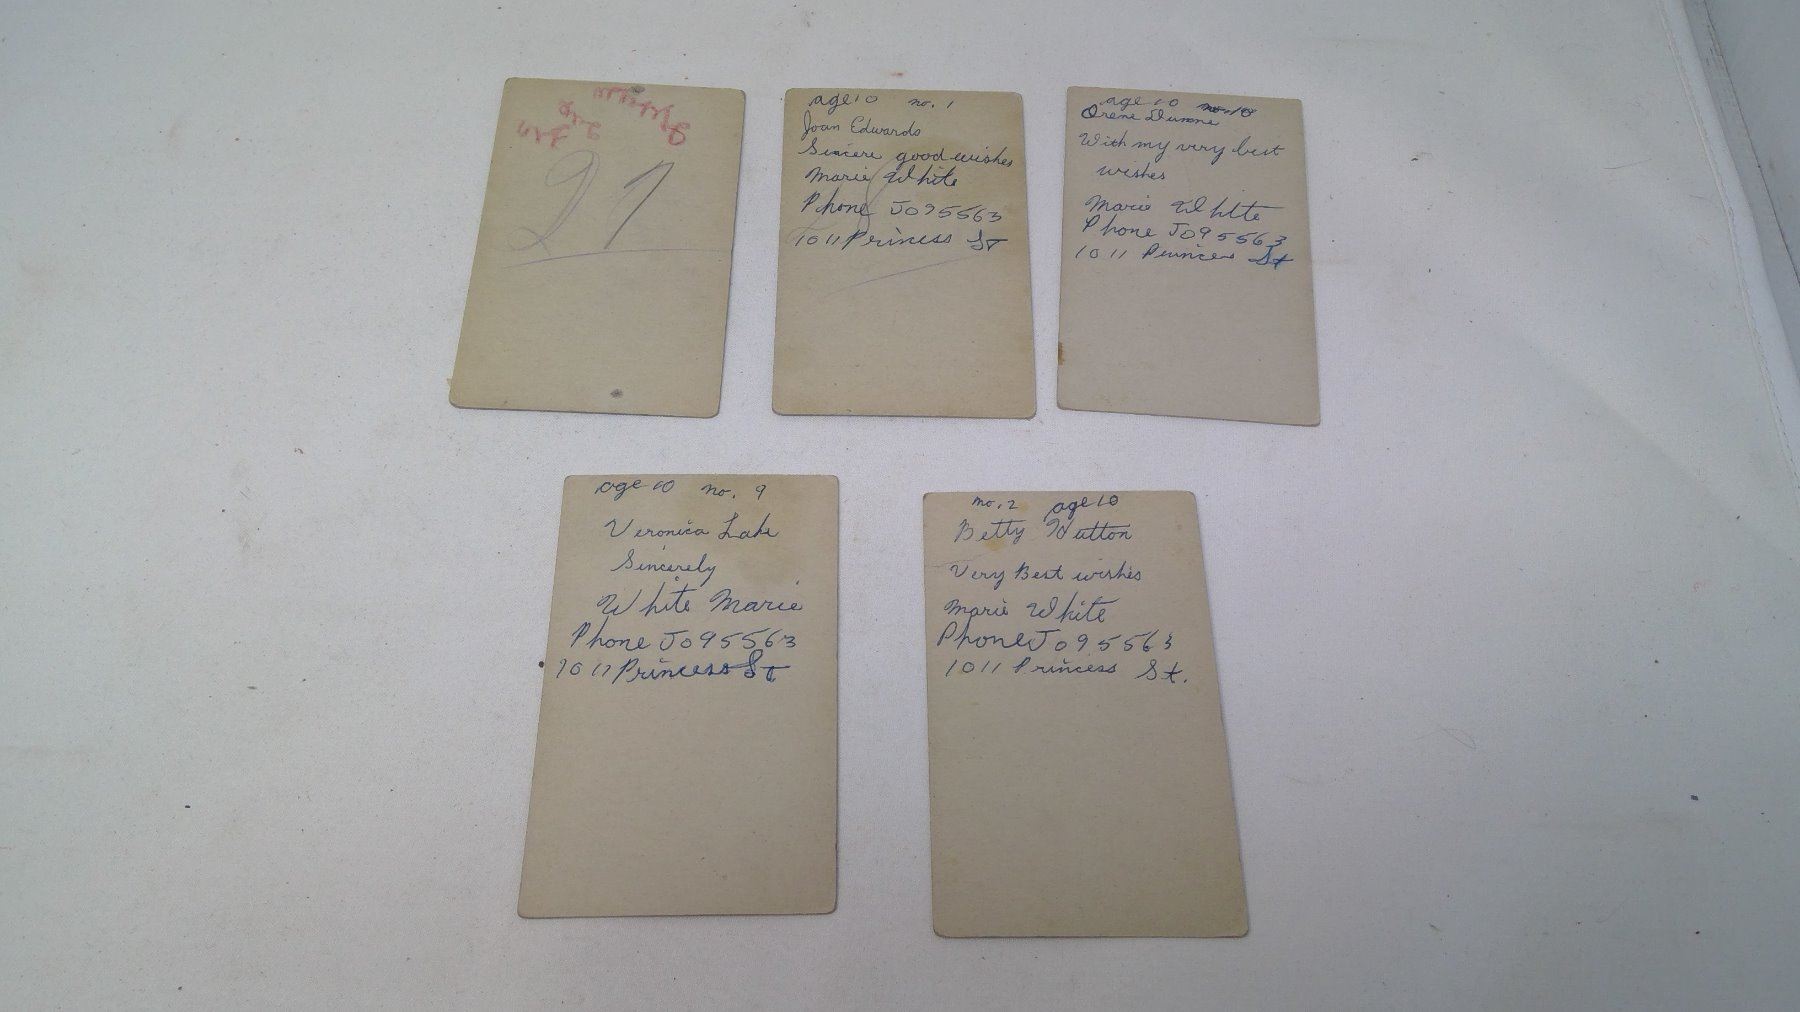 21
age 10 no. 1
Joan Edwards
Sincere good wishes
Marie White
Phone JO95563
1011 Princess St
age 10 no. 10
Orene Dunne
With my very best
wishes
Marie White
Phone JO95563
1011 Princess St
age 10 no. 9
Veronica Lake
Sincerely
White Marie
Phone JO95563
1011 Princess St
no. 2 age 10
Betty Hutton
Very Best wishes
Marie White
Phone JO95563
1011 Princess St.